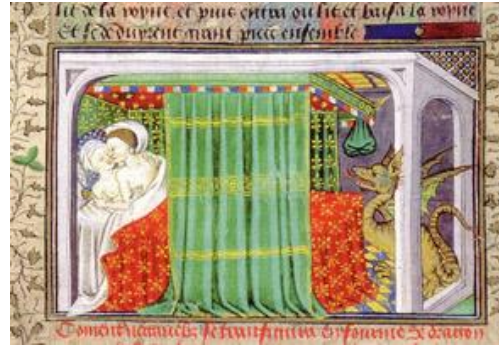 lit de la royne, et puis entra ou lit et baisa la royne
Et se deduyrent grant piece ensemble
Coment se transfigura en fourme de dracon